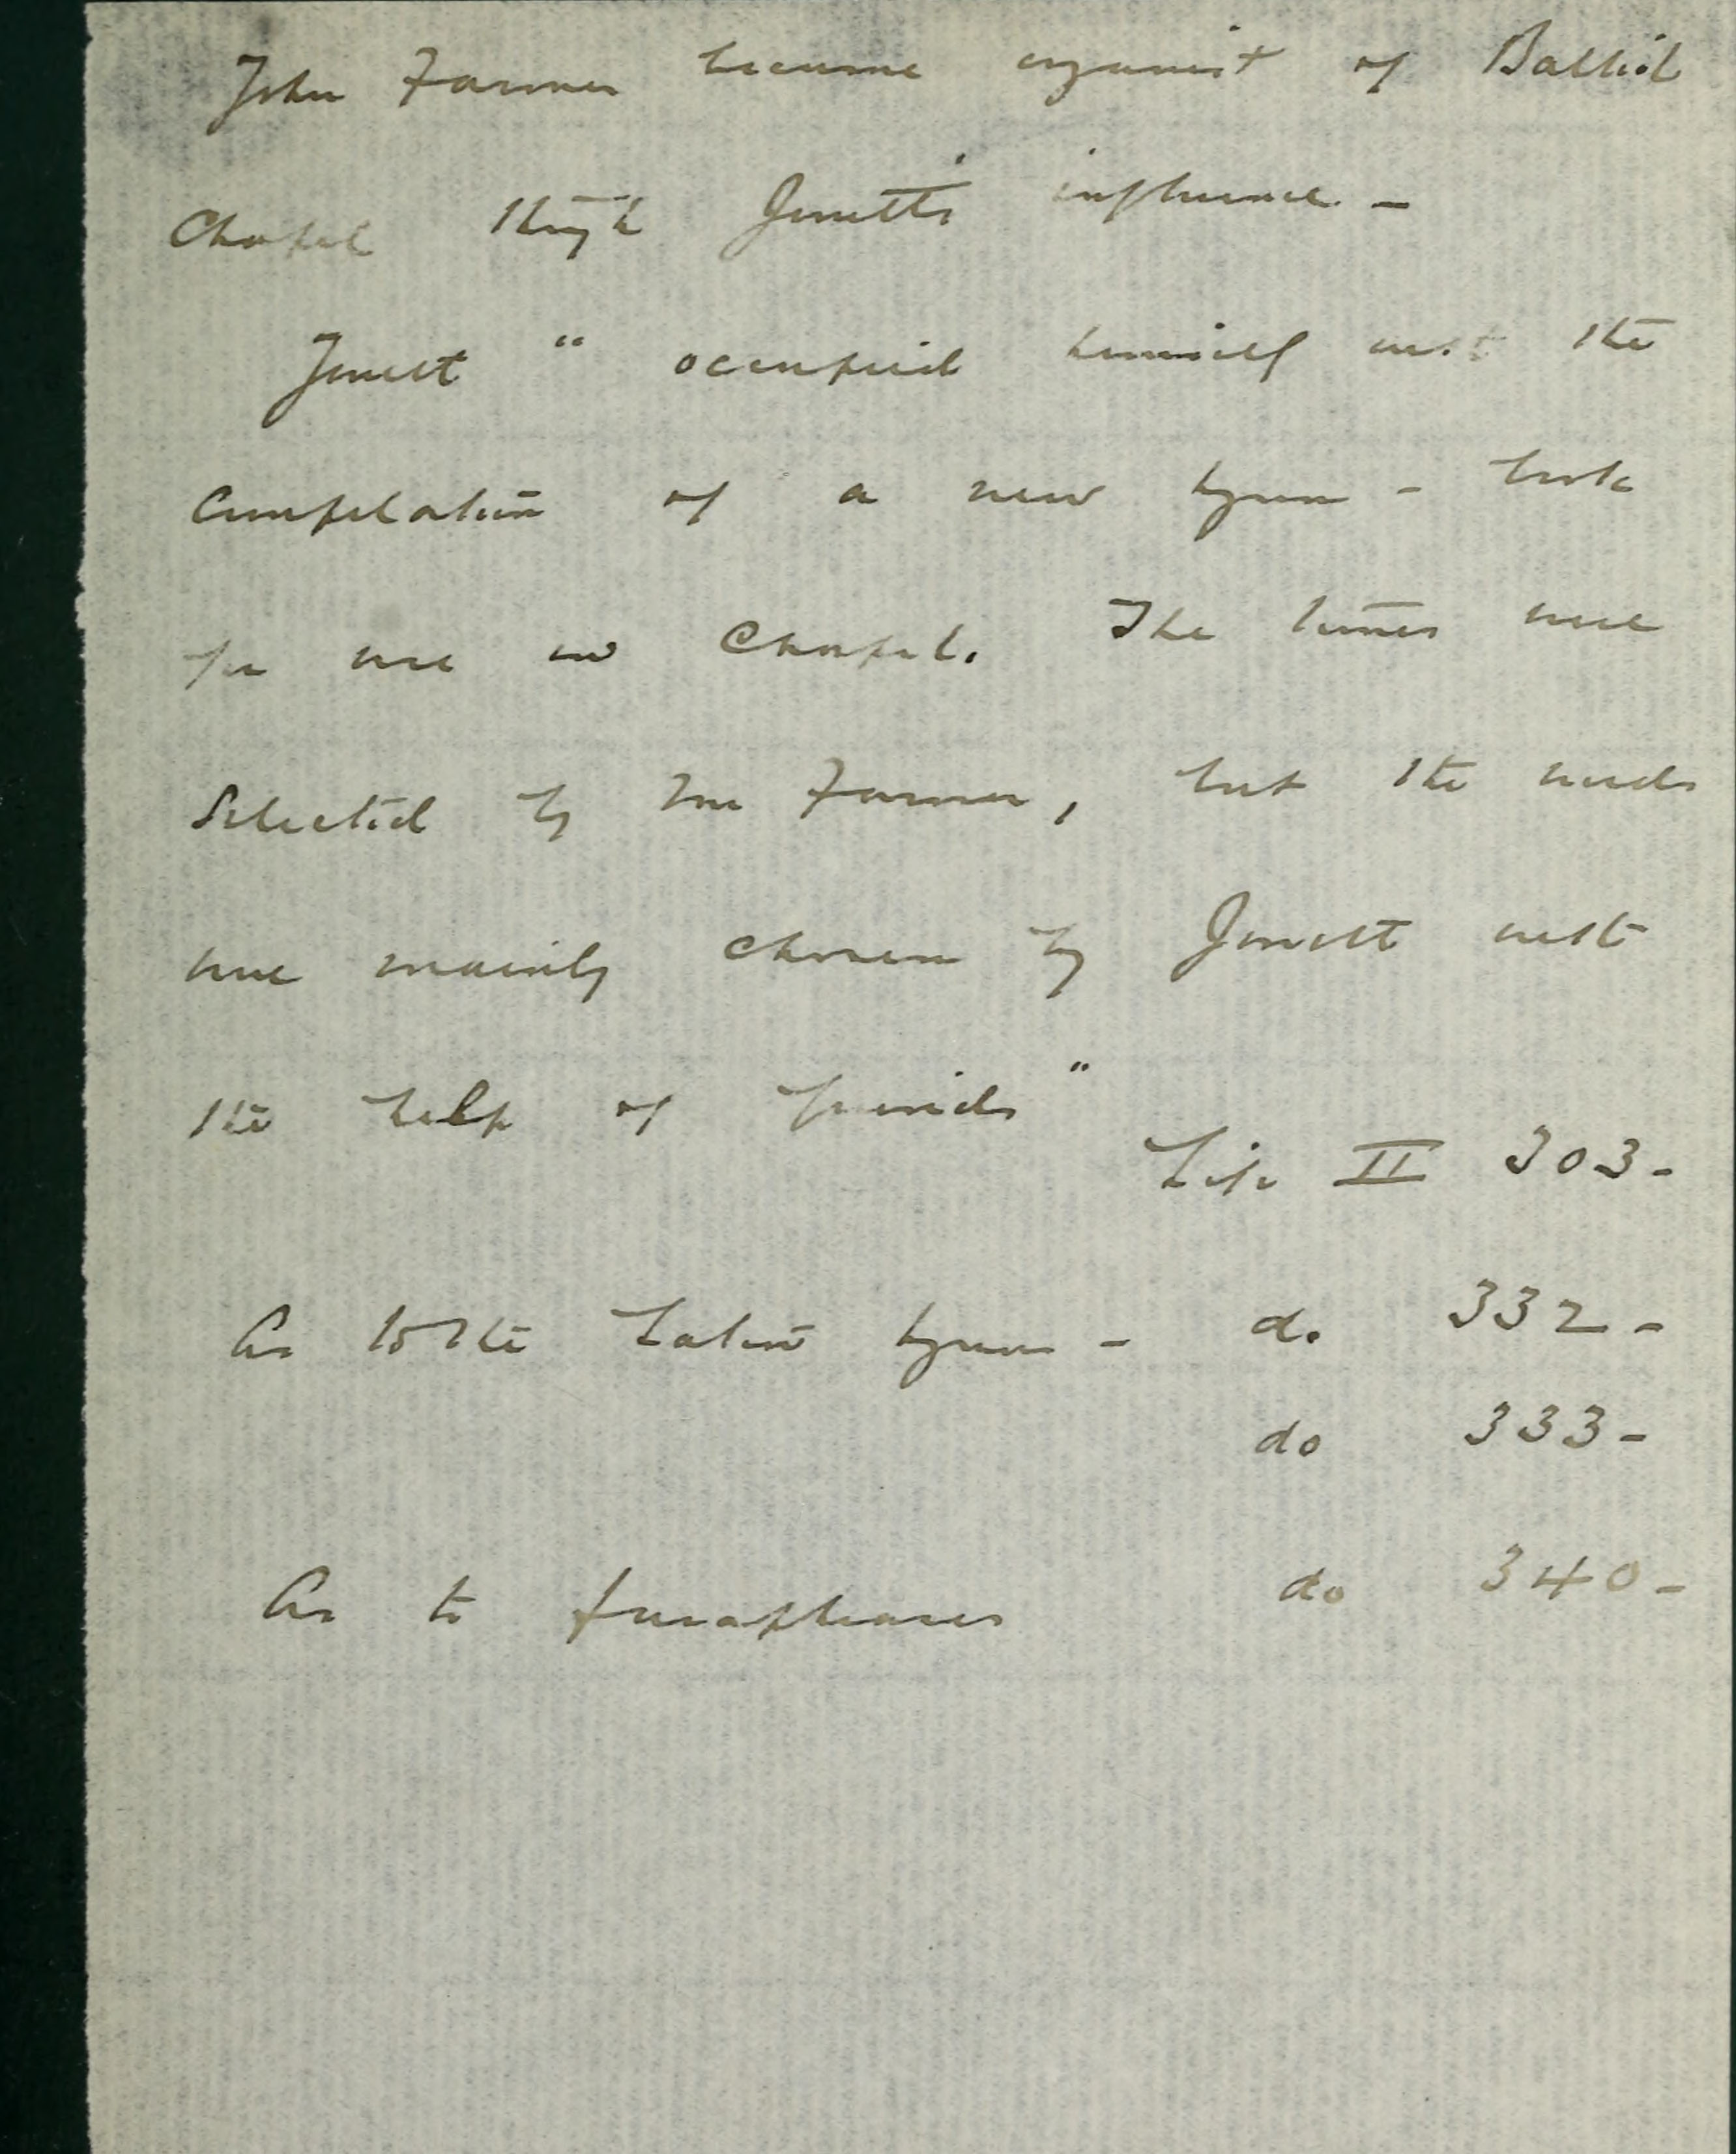 John Farmer became organist of Balliol
Chapel through Jowett's influence. -
Jowett " occupied himself with the
Compilation of a new hymn - book
for use in Chapel. The tunes were
Selected by Mr Farmer, but the words
were mainly chosen by Jowett with
the help of friends "
Life II 303 -
As to the Latin hymn - do 332 -
do 333 -
As to paraphrases do 340 -